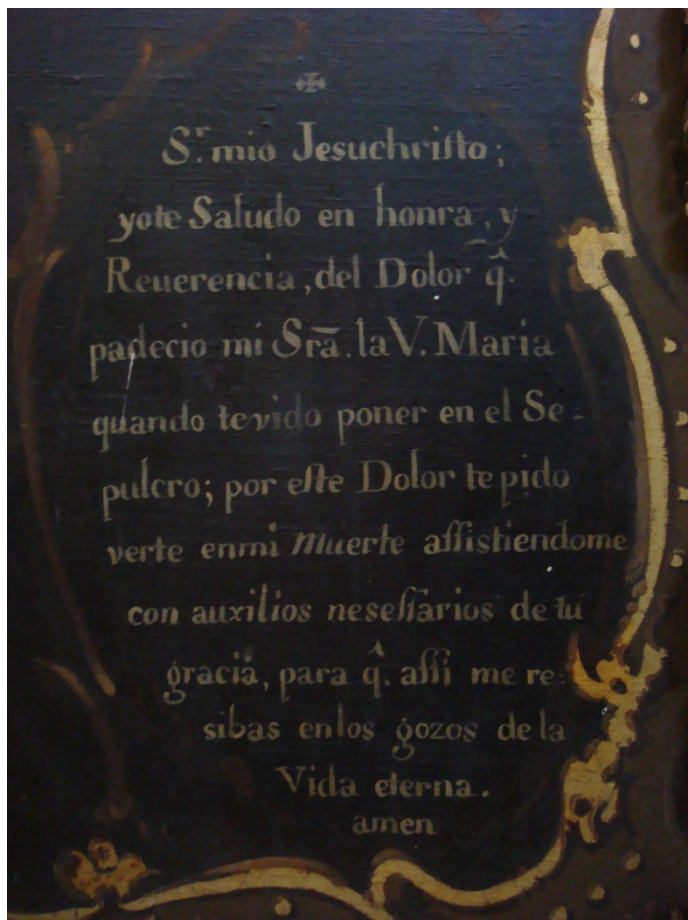 ✠
S.r mio Jesuchriſto;
yote Saludo en honra, y
Reuerencia, del Dolor q̂.
padecio mi Srã. la V. Maria
quando tevido poner en el Se-
pulcro; por eſte Dolor te pido
verte enmi Muerte aſſistiendome
con auxilios neseſſarios de tu
gracia, para q̂. aſſi me re-
sibas enlos gozos de la
Vida eterna.
amen